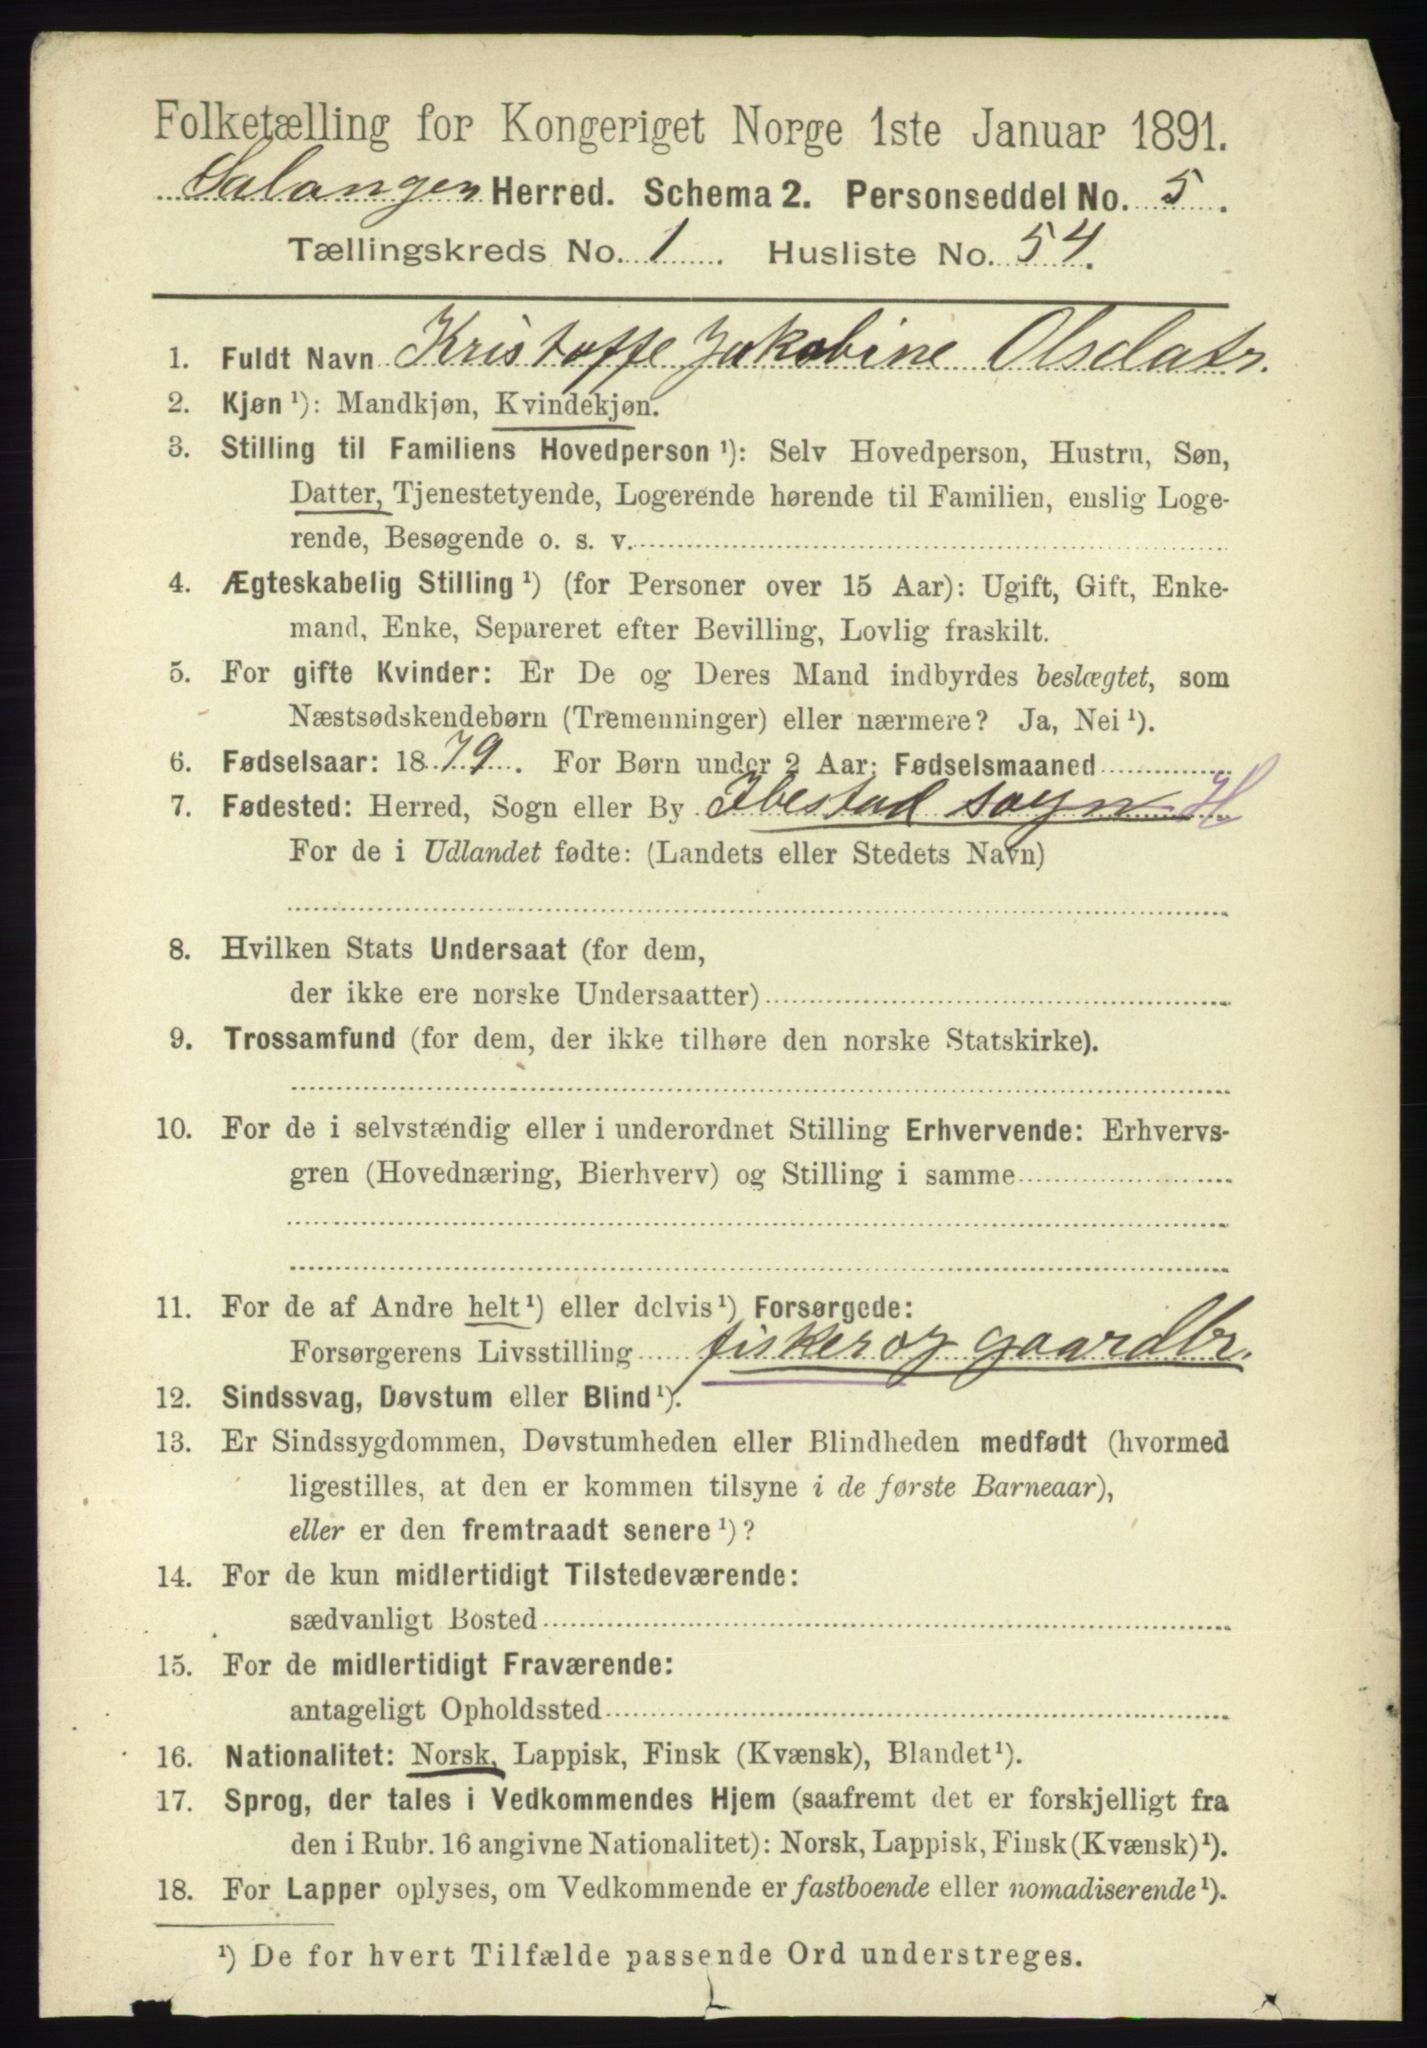 Folketælling for Kongeriget Norge 1ste Januar 1891.
Salangen Herred. Schema 2. Personseddel No. 5.
Tællingskreds No. 1. Husliste No. 54.
1. Fuldt Navn Kristoffe Jakobine Olsdatr.
2. Kjøn ¹): Mandkjøn, Kvindekjøn.
3. Stilling til Familiens Hovedperson ¹): Selv Hovedperson, Hustru, Søn,
Datter, Tjenestetyende, Logerende hørende til Familien, enslig Loge-
rende, Besøgende o. s. v.
4. Ægteskabelig Stilling ¹) (for Personer over 15 Aar): Ugift, Gift, Enke-
mand, Enke, Separeret efter Bevilling, Lovlig fraskilt.
5. For gifte Kvinder: Er De og Deres Mand indbyrdes beslægtet, som
Næstsødskendebørn (Tremenninger) eller nærmere? Ja, Nei ¹).
6. Fødselsaar: 1879. For Børn under 2 Aar: Fødselsmaaned
7. Fødested: Herred, Sogn eller By Ibestad sogn H
For de i Udlandet fødte: (Landets eller Stedets Navn)
8. Hvilken Stats Undersaat (for dem,
der ikke ere norske Undersaatter)
9. Trossamfund (for dem, der ikke tilhøre den norske Statskirke).
10. For de i selvstændig eller i underordnet Stilling Erhvervende: Erhvervs-
gren (Hovednæring, Bierhverv) og Stilling i samme
11. For de af Andre helt ¹) eller delvis ¹) Forsørgede:
Forsørgerens Livsstilling fisker og gaardbr.
12. Sindssvag, Døvstum eller Blind ¹).
13. Er Sindssygdommen, Døvstumheden eller Blindheden medfødt (hvormed
ligestilles, at den er kommen tilsyne i de første Barneaar),
eller er den fremtraadt senere ¹)?
14. For de kun midlertidigt Tilstedeværende:
sædvanligt Bosted
15. For de midlertidigt Fraværende:
antageligt Opholdssted
16. Nationalitet: Norsk, Lappisk, Finsk (Kvænsk), Blandet ¹).
17. Sprog, der tales i Vedkommendes Hjem (saafremt det er forskjelligt fra
den i Rubr. 16 angivne Nationalitet): Norsk, Lappisk, Finsk (Kvænsk) ¹).
18. For Lapper oplyses, om Vedkommende er fastboende eller nomadiserende ¹).
¹) De for hvert Tilfælde passende Ord understreges.